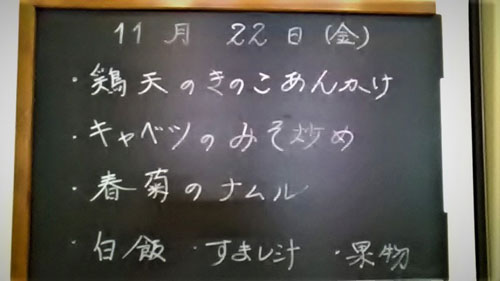 11月22日(金)
・鶏天のきのこあんかけ
・キャベツのみそ炒め
・春菊のナムル
・白飯 ・すまし汁 ・果物